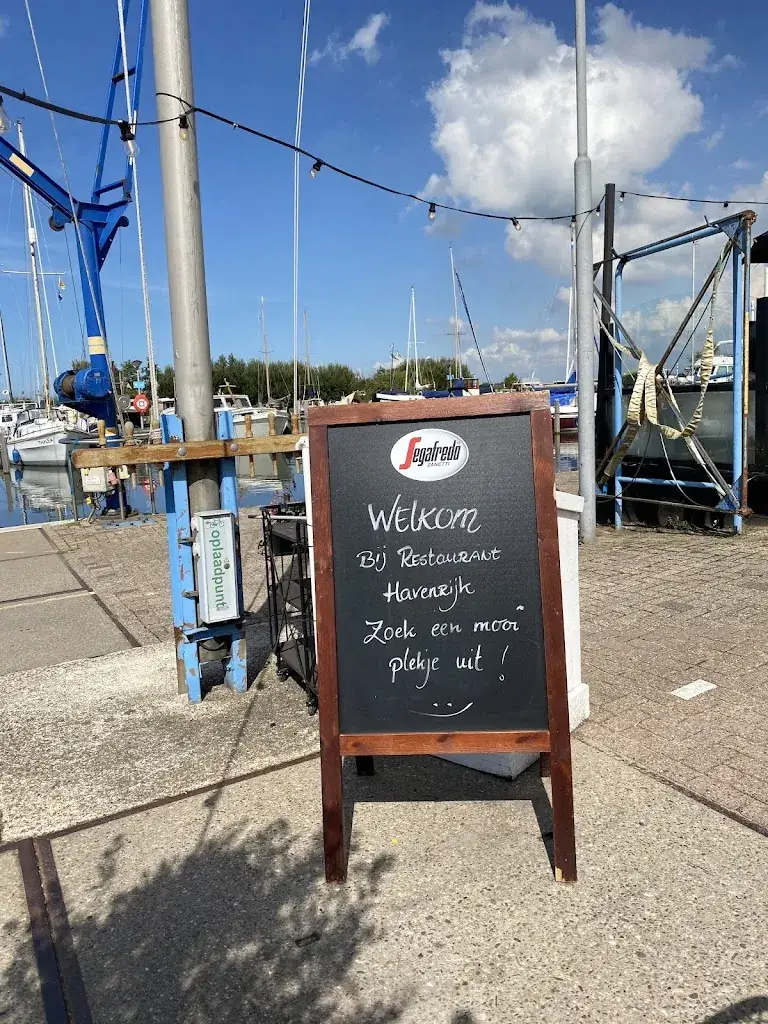 Segafredo
ZANETTI
WELKOM
Bij Restaurant
Havenrijk
Zoek een mooi
plekje uit !
oplaadpunt